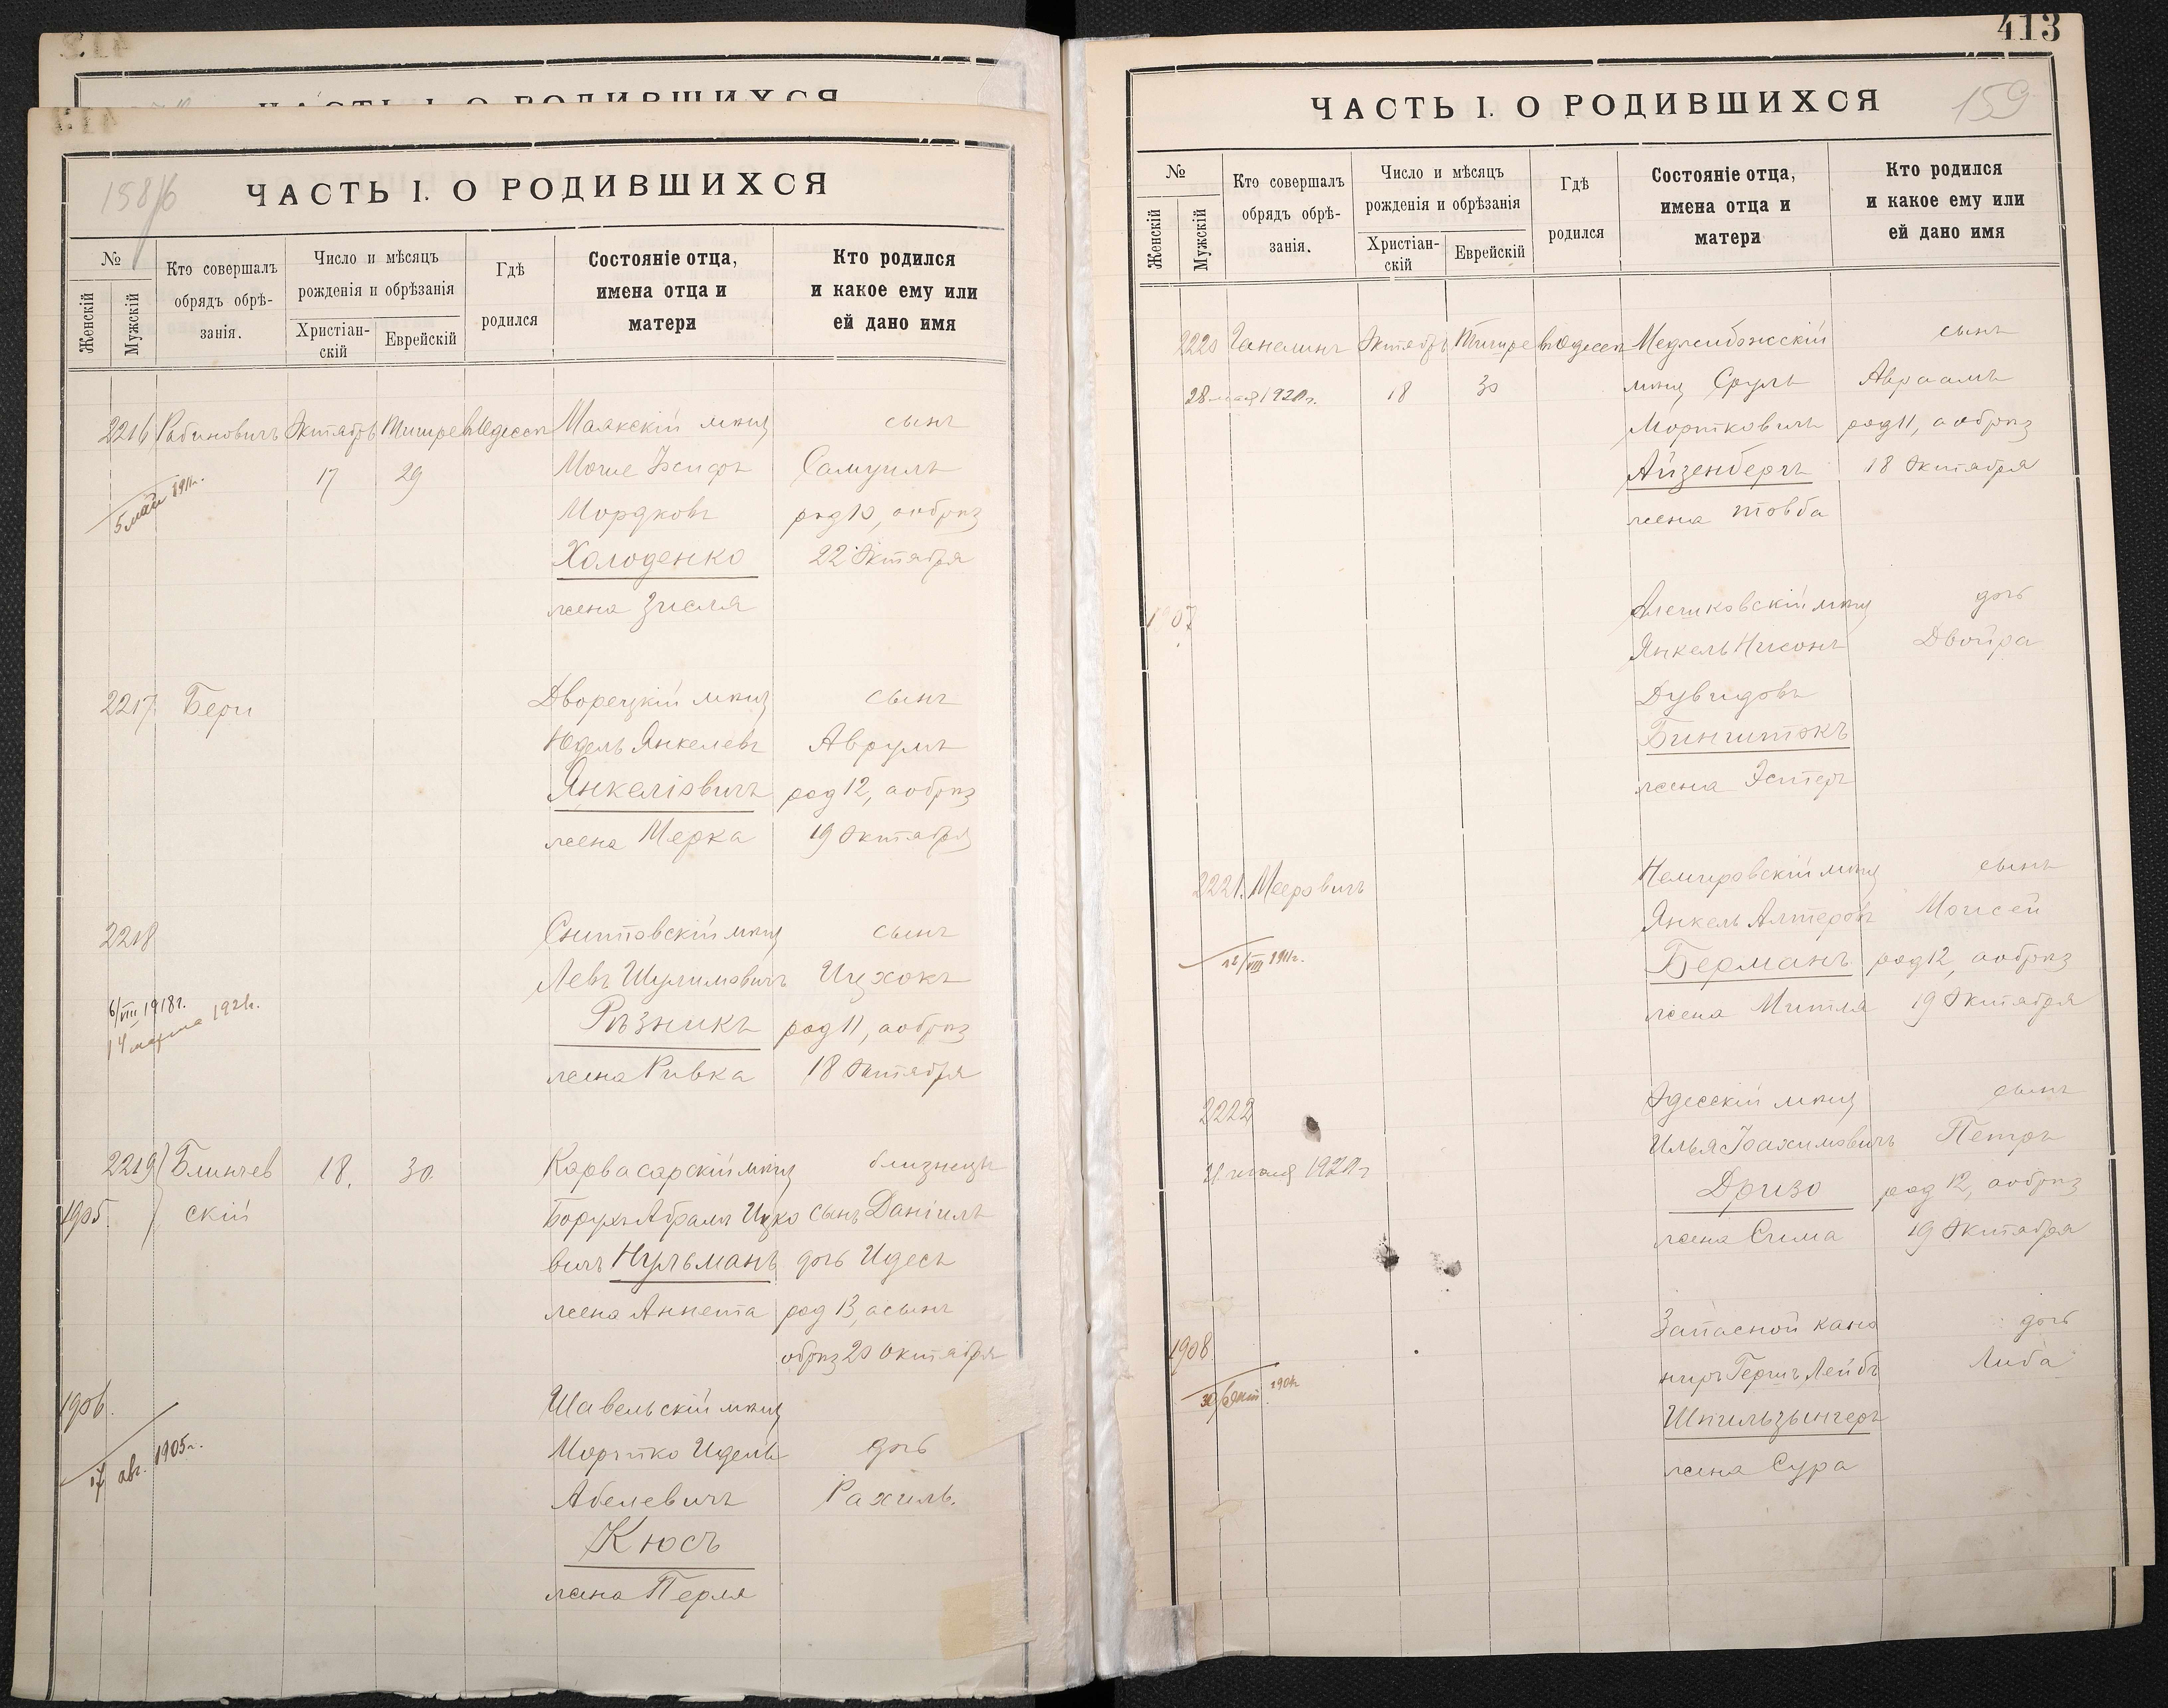 158/6
ЧАСТЬ I. О РОДИВШИХСЯ
№
Женскій
Мужскій
Кто совершалъ обрядъ обрѣ-
занія.
Число и мѣсяцъ
рожденія и обрѣзанія
Христіан-
скій
Еврейскій
Гдѣ
родился
Состояніе отца,
имена отца и
матери
Кто родился
и какое ему или
ей дано имя
2216 Рабиновичъ Октябрь Тишре въ Одессѣ Маякскій мѣщ сынъ
17 29 Мошe Іосифъ Самуилъ
5 мая 1911г.
Мордковъ род 10, а обрѣз
Холоденко 22 Октября
жена Зисля
2217 Бери Дворецкій мѣщ сынъ
Юдель Янкелевъ Аврумъ
Янкеліовичъ род 12, а обрѣз
жена Мерка 19 Октября
2218 Снитовскій мѣщ сынъ
Левъ Шулимовичъ Ицхокъ
6/VIII 1918г.
14 марта 1921г.
Рѣзникъ род 11, а обрѣз
жена Ривка 18 Октября
2219 Блинчев 18. 30. Карвасарскій мѣщ близнецы
1905. скій Борухъ Абрамъ Ицко сынъ Даніилъ
вичъ Нульманъ дочь Идесъ
жена Аннета род 13, а сынъ
обрѣз 20 Октября
1906. Шавельскій мѣщ
17 авг. 1905г.
Мортко Идель дочь
Абелевичъ Рахиль.
Кюсъ
жена Перля
413
159
ЧАСТЬ I. О РОДИВШИХСЯ
№
Женскій
Мужскій
Кто совершалъ
обрядъ обрѣ-
занія.
Число и мѣсяцъ
рожденія и обрѣзанія
Христіан-
скій
Еврейскій
Гдѣ
родился
Состояніе отца,
имена отца и
матери
Кто родился
и какое ему или
ей дано имя
2220 Октябрь Тишре въ Одессѣ Меджибожскій сынъ
28 мая 1920г. 18 30 мѣщ Сруль Авраамъ
Мортковичъ род 11, а обрѣз
Айзенбергъ 18 Октября
жена Товба
1907 мѣщ дочь
Янкель Нисонъ Двойра
Дувидовъ
Бинштокъ
жена Эстеръ
2221. Мееровичъ Немировскій мѣщ сынъ
Янкель Алтеровъ Моисей
12/VIII 1911г.
Берманъ род 12, а обрѣз
жена Митля 19 Октября
2222 Одесскій мѣщ сынъ
1920г Илья Іоахимовичъ Петръ
Дризо род 12, а обрѣз
жена Сима 19 Октября
1908 Запасной кано дочь
ниръ Гершъ Лейбъ Либа
Шпильзингеръ
жена Сура